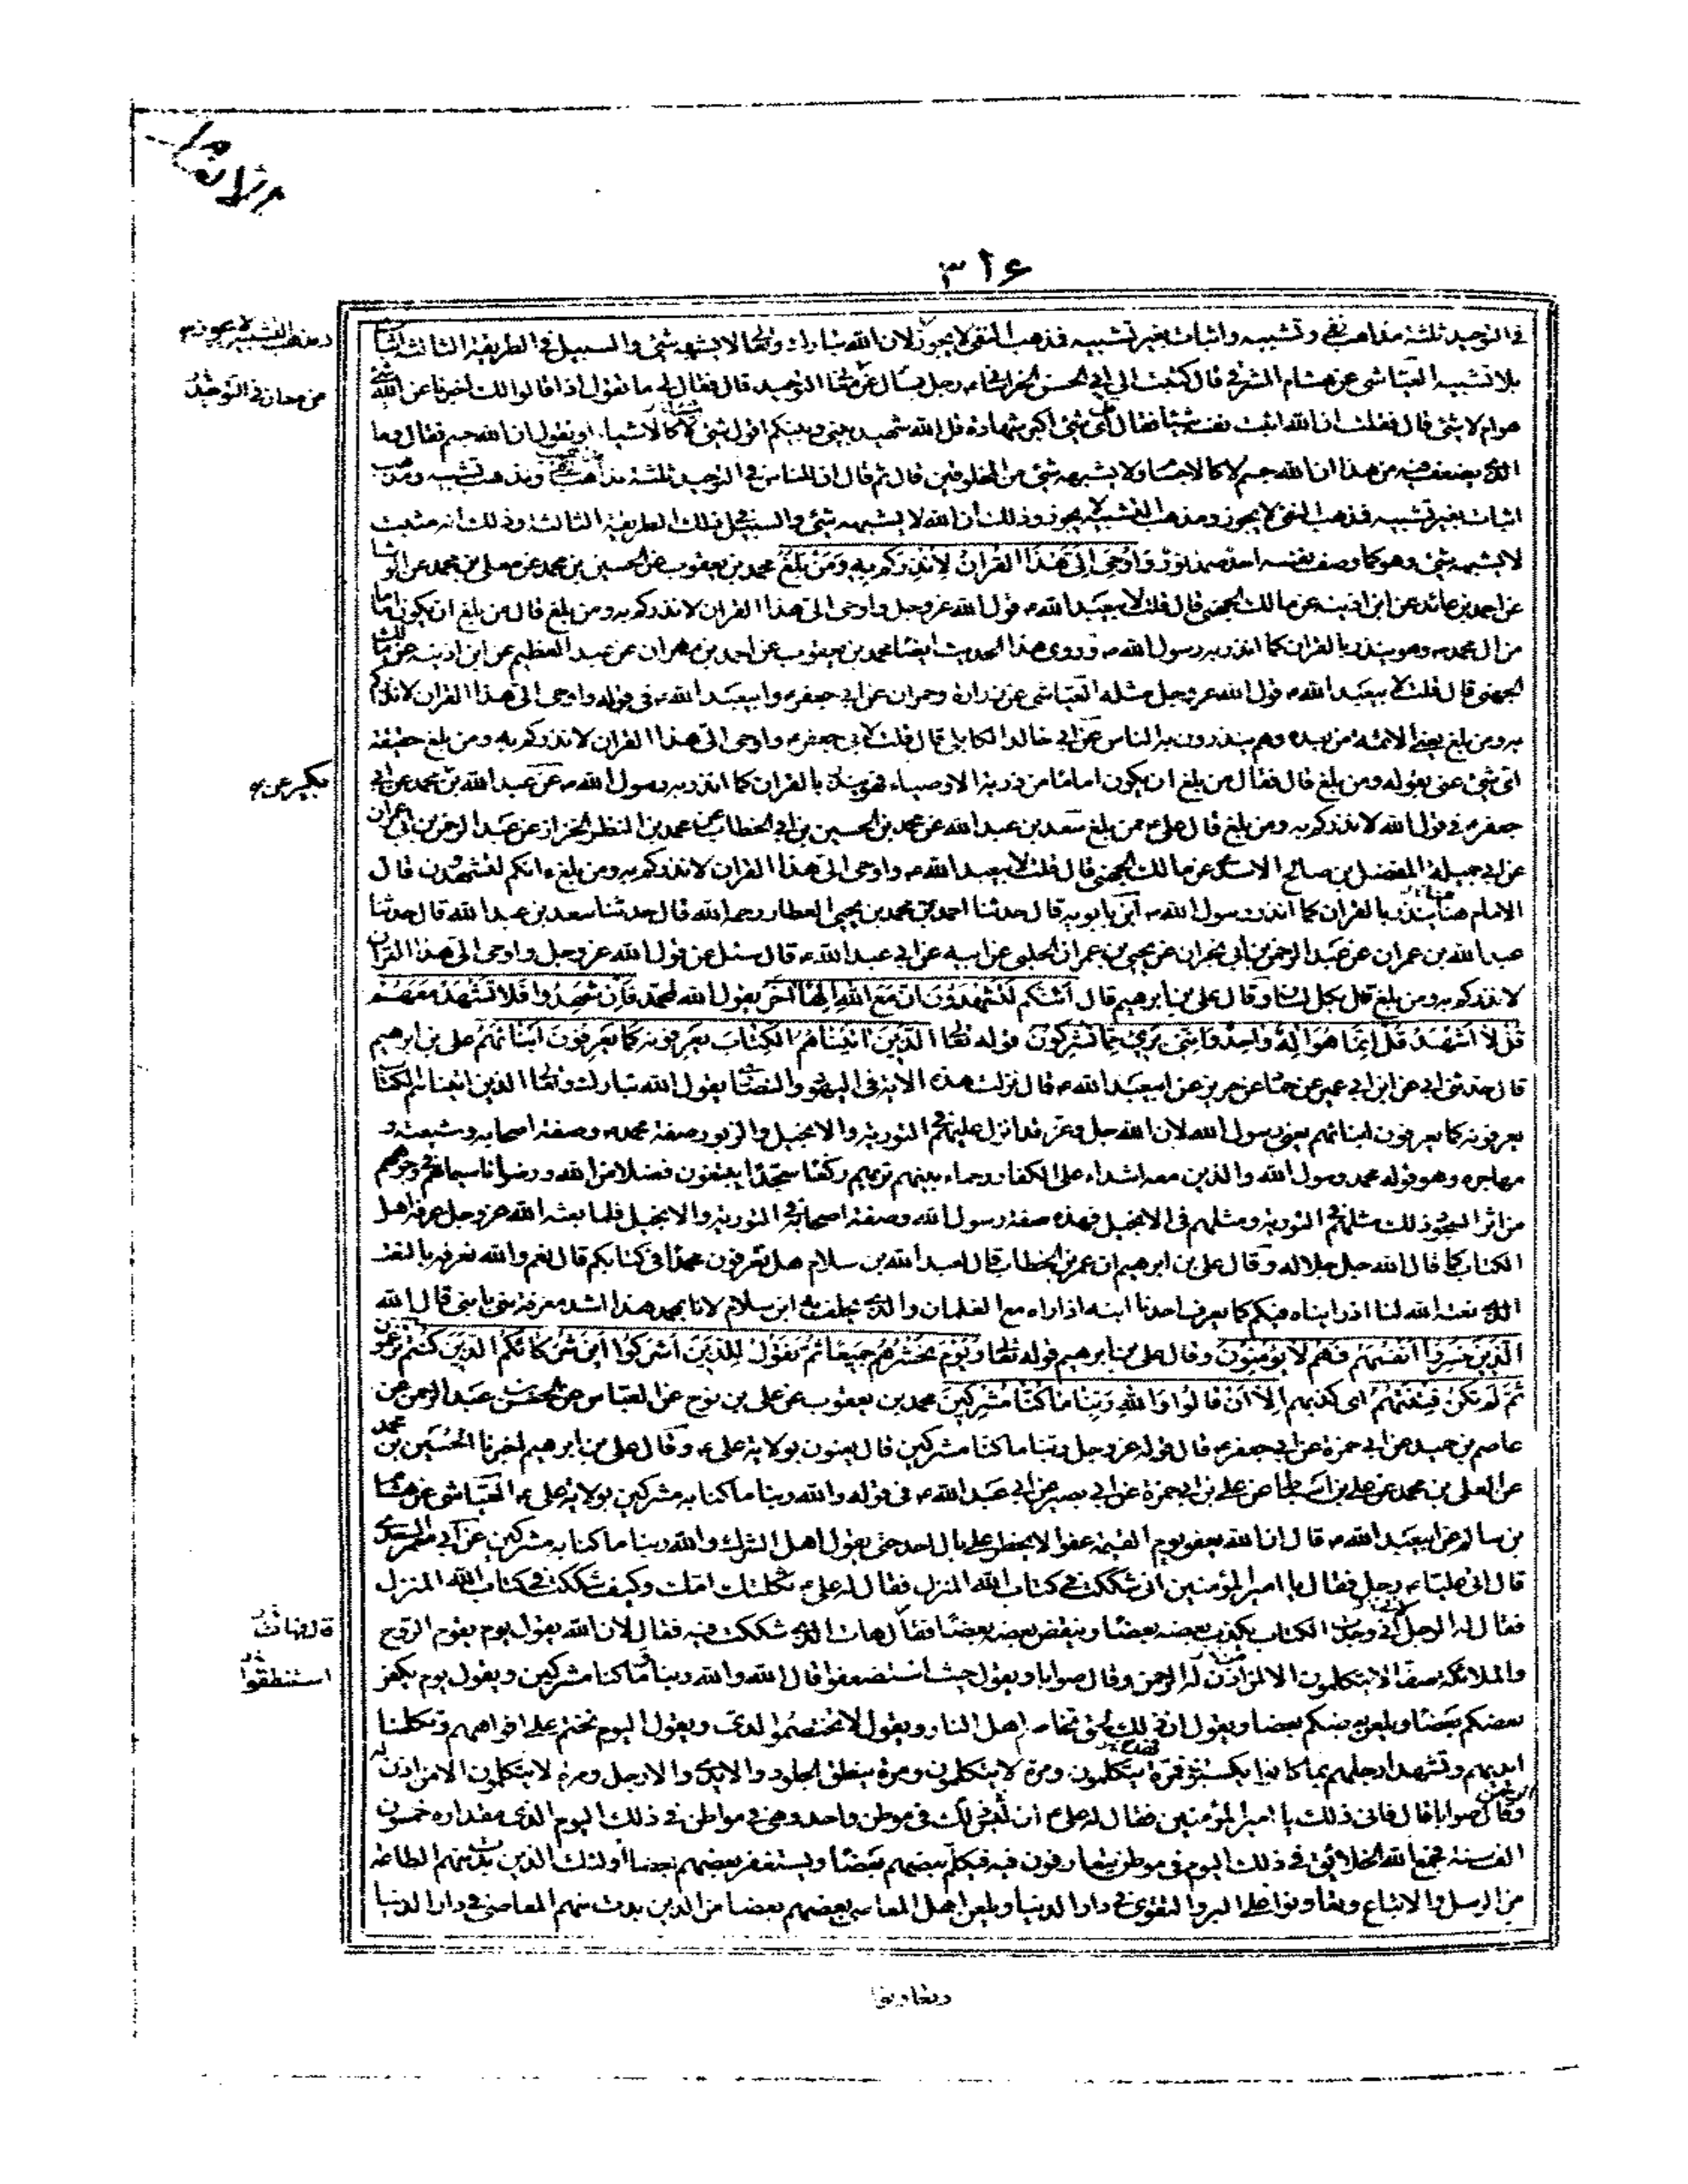 الانعام
٣١۶
في التوحيد ثلثة مذاهب نفي وتشبيه واثبات بغير تشبيه فمذهب النفي لا يجوز لان الله تبارك وتعالى لا يشبهه شئ والسبيل في الطريقة الثالثة اثبات
ومذهب التشبيه لا يجوز
بلا تشبيه العياشي عن هشام المشرقي قال كتبت الى ابي الحسن الخراساني رجل يسأل عن معان في التوحيد قال فقال لي ما تقول اذا قالوا لك اخبرنا عن الله شئ
عن معان في التوحيد
هو ام لا شئ قال فقلت ان الله اثبت نفسه شيئا فقال اي شئ اكبر شهادة قل الله شهيد بيني وبينكم اقول شئ لا كالاشياء او نقول ان الله جسم فقال وما
الذي يضعف فيه من هذا ان الله جسم لا كالاجسام ولا يشبهه شئ من المخلوقين قال ثم قال ان للناس في التوحيد ثلثة مذاهب ومذهب تشبيه ومذهب
اثبات بغير تشبيه فمذهب النفي لا يجوز ومذهب التشبيه لا يجوز وذلك ان الله لا يشبهه شئ والسبيل في ذلك الطريقة الثالثة وذلك انه مثبت
لا يشبهه شئ وهو كما وصف نفسه احد صمد نور وَاُوحِيَ اِلَيَّ هٰذَا الْقُرْانُ لِاُنْذِرَكُمْ بِهِ وَمَنْ بَلَغَ محمد بن يعقوب عن الحسين بن محمد عن معلى بن محمد عن الوشا
عن احمد بن عائذ عن ابن اذينة عن مالك الجهني قال قلت لابيعبد الله ع قول الله عز وجل واوحى الي هذا القران لانذركم به ومن بلغ قال من بلغ ان يكون اماما
من ال محمد ص وهو ينذر بالقران كما انذر به رسول الله ص وروى هذا الحديث ايضا محمد بن يعقوب عن احمد بن مهران عن عبد العظيم عن ابن اذينة عن مالك
الجهني قال قلت لابيعبد الله ع قول الله عز وجل مثله العياشي عن زرارة وحمران عن ابي جعفر ع وابيعبد الله ع في قوله واوحى الي هذا القران لانذركم
به ومن بلغ يعني الائمة من بعده وهم ينذرون به الناس عن ابي خالد الكابلي قال قلت لابي جعفر ع واوحى الي هذا القران لانذركم به ومن بلغ حقيقة
اي شئ عنى بقوله ومن بلغ قال فقال من بلغ ان يكون اماما من ذرية الاوصياء فهو ينذر بالقران كما انذر به رسول الله ص عن عبد الله بن محمد عن ابي
بكير عن
جعفر ع في قول الله لانذركم به ومن بلغ قال علي ع ممن بلغ سعد بن عبد الله عن محمد بن الحسين بن ابي الخطاب عن محمد بن النظر الخزاز عن عبد الرحمن بن ابي نجران
عن ابي جميلة المفضل بن صالح الاسدي عن مالك الجهني قال قلت لابيعبد الله ع واوحى الي هذا القران لانذركم به ومن بلغ ءانكم لتشهدون قال
الامام منا ينذر بالقران كما انذر رسول الله ص ابن بابويه قال حدثنا احمد بن محمد بن يحيى العطار رحمه الله قال حدثنا سعد بن عبد الله قال حدثنا
عبد الله بن عمران عن عبد الرحمن بن ابي نجران عن يحيى بن عمران الحلبي عن ابيه عن ابي عبد الله ع قال سئل عن قول الله عز وجل واوحى الي هذا القران
لانذركم به ومن بلغ قال بكل لسان وقال علي بن ابرهيم قال اَئِنَّكُمْ لَتَشْهَدُونَ اَنَّ مَعَ اللهِ اٰلِهَةً اُخْرىٰ يقول الله لمحمد فَاِنْ شَهِدُوا فَلَا تَشْهَدْ مَعَهُمْ
قُلْ لَا اَشْهَدُ قُلْ اِنَّمَا هُوَ اِلٰهٌ وَاحِدٌ وَاِنَّنِي بَرِيءٌ مِمَّا تُشْرِكُونَ قوله تعالى الَّذِينَ اٰتَيْنَاهُمُ الْكِتَابَ يَعْرِفُونَهُ كَمَا يَعْرِفُونَ اَبْنَائَهُمْ علي بن ابرهيم
قال حدثني ابي عن ابن ابي عمير عن حماد عن حريز عن ابيعبد الله ع قال نزلت هذه الاية في اليهود والنصارى يقول الله تبارك وتعالى الذين اتيناهم الكتاب
يعرفونه كما يعرفون ابنائهم يعني رسول الله لان الله جل وعز قد انزل عليهم في التورية والانجيل والزبور صفة محمد ص وصفة اصحابه وشيعته و
مهاجره وهو قوله محمد رسول الله والذين معه اشداء على الكفار رحماء بينهم تريهم ركعا سجدا يبتغون فضلا من الله ورضوانا سيماهم في وجوههم
من اثر السجود ذلك مثلهم في التورية ومثلهم في الانجيل فهذه صفة رسول الله وصفة اصحابه في التورية والانجيل فلما بعثه الله عز وجل عرفه اهل
الكتاب كما قال الله جل جلاله وقال علي بن ابرهيم ان عمر بن الخطاب قال لعبد الله بن سلام هل تعرفون محمدا في كتابكم قال نعم والله نعرفه بالنعت
الذي نعته الله لنا اذ رايناه فيكم كما يعرف احدنا ابنه اذا راه مع الغلمان والذي يحلف به ابن سلام لانا بمحمد هذا اشد معرفة مني بابني قال الله
الَّذِينَ خَسِرُوا اَنْفُسَهُمْ فَهُمْ لَا يُؤْمِنُونَ وقال علي بن ابرهيم قوله تعالى وَيَوْمَ نَحْشُرُهُمْ جَمِيعًا ثُمَّ نَقُولُ لِلَّذِينَ اَشْرَكُوا اَيْنَ شُرَكَائُكُمُ الَّذِينَ كُنْتُمْ تَزْعُمُونَ
ثُمَّ لَمْ تَكُنْ فِتْنَتُهُمْ اى كذبهم اِلَّا اَنْ قَالُوا وَاللهِ رَبِّنَا مَا كُنَّا مُشْرِكِينَ محمد بن يعقوب عن علي بن نوح عن العباس عن الحسن بن عبد الرحمن عن
عاصم بن حميد عن ابي حمزة عن ابي جعفر ع قال قوله عز وجل ربنا ما كنا مشركين قال يعنون بولاية علي ع وقال علي بن ابرهيم اخبرنا الحسين بن محمد
عن المعلى بن محمد عن علي بن اسباط عن علي بن ابي حمزة عن ابي بصير عن ابي عبد الله ع في قوله والله ربنا ما كنا به مشركين بولاية علي ع العياشي عن هشام
بن سالم عن ابيعبد الله ع قال ان الله يعفو يوم القيمة عفوا لا يخطر على بال احد حتى يقول اهل الشرك والله ربنا ما كنا به مشركين عن ابي معمر السعدي
قال اتى عليا ع رجل فقال يا امير المؤمنين اني شككت في كتاب الله المنزل فقال له علي ع ثكلتك امك وكيف شككت في كتاب الله المنزل
فقال له الرجل اني وجدت الكتاب يكذب بعضه بعضا وينقض بعضه بعضا فقال هات الذي شككت فيه فقال لان الله يقول يوم يقوم الروح
قال فهات
والملائكة صفا لا يتكلمون الا لمن اذن له الرحمن وقال صوابا ويقول حيث استضعفوا قال الله والله ربنا ما كنا مشركين ويقول يوم يكفر
استنطقوا
بعضكم بعضا ويلعن بعضكم بعضا ويقول ان ذلك لحق تخاصم اهل النار ويقول لا تختصموا لدي ويقول اليوم نختم على افواههم وتكلمنا
ايديهم وتشهد ارجلهم بما كانوا يكسبون فمرة يتكلمون ومرة لا يتكلمون ومرة ينطق الجلود والايدي والارجل ومرة لا يتكلمون الا من اذن له الرحمن
وقال صوابا قال فانى ذلك يا امير المؤمنين فقال له علي ع ان ذلك ليس في موطن واحد وهي في مواطن في ذلك اليوم الذي مقداره خمسون
الف سنة فجمع الله الخلائق في ذلك اليوم في موطن يتعارفون فيه فيكلم بعضهم بعضا ويستغفر بعضهم بعضا اولئك الذين بدت منهم الطاعة
من الرسل والاتباع وتعاونوا على البر والتقوى في دار الدنيا ويلعن اهل المعاصي بعضهم بعضا من الذين بدت منهم المعاصي في دار الدنيا
وتعاونوا